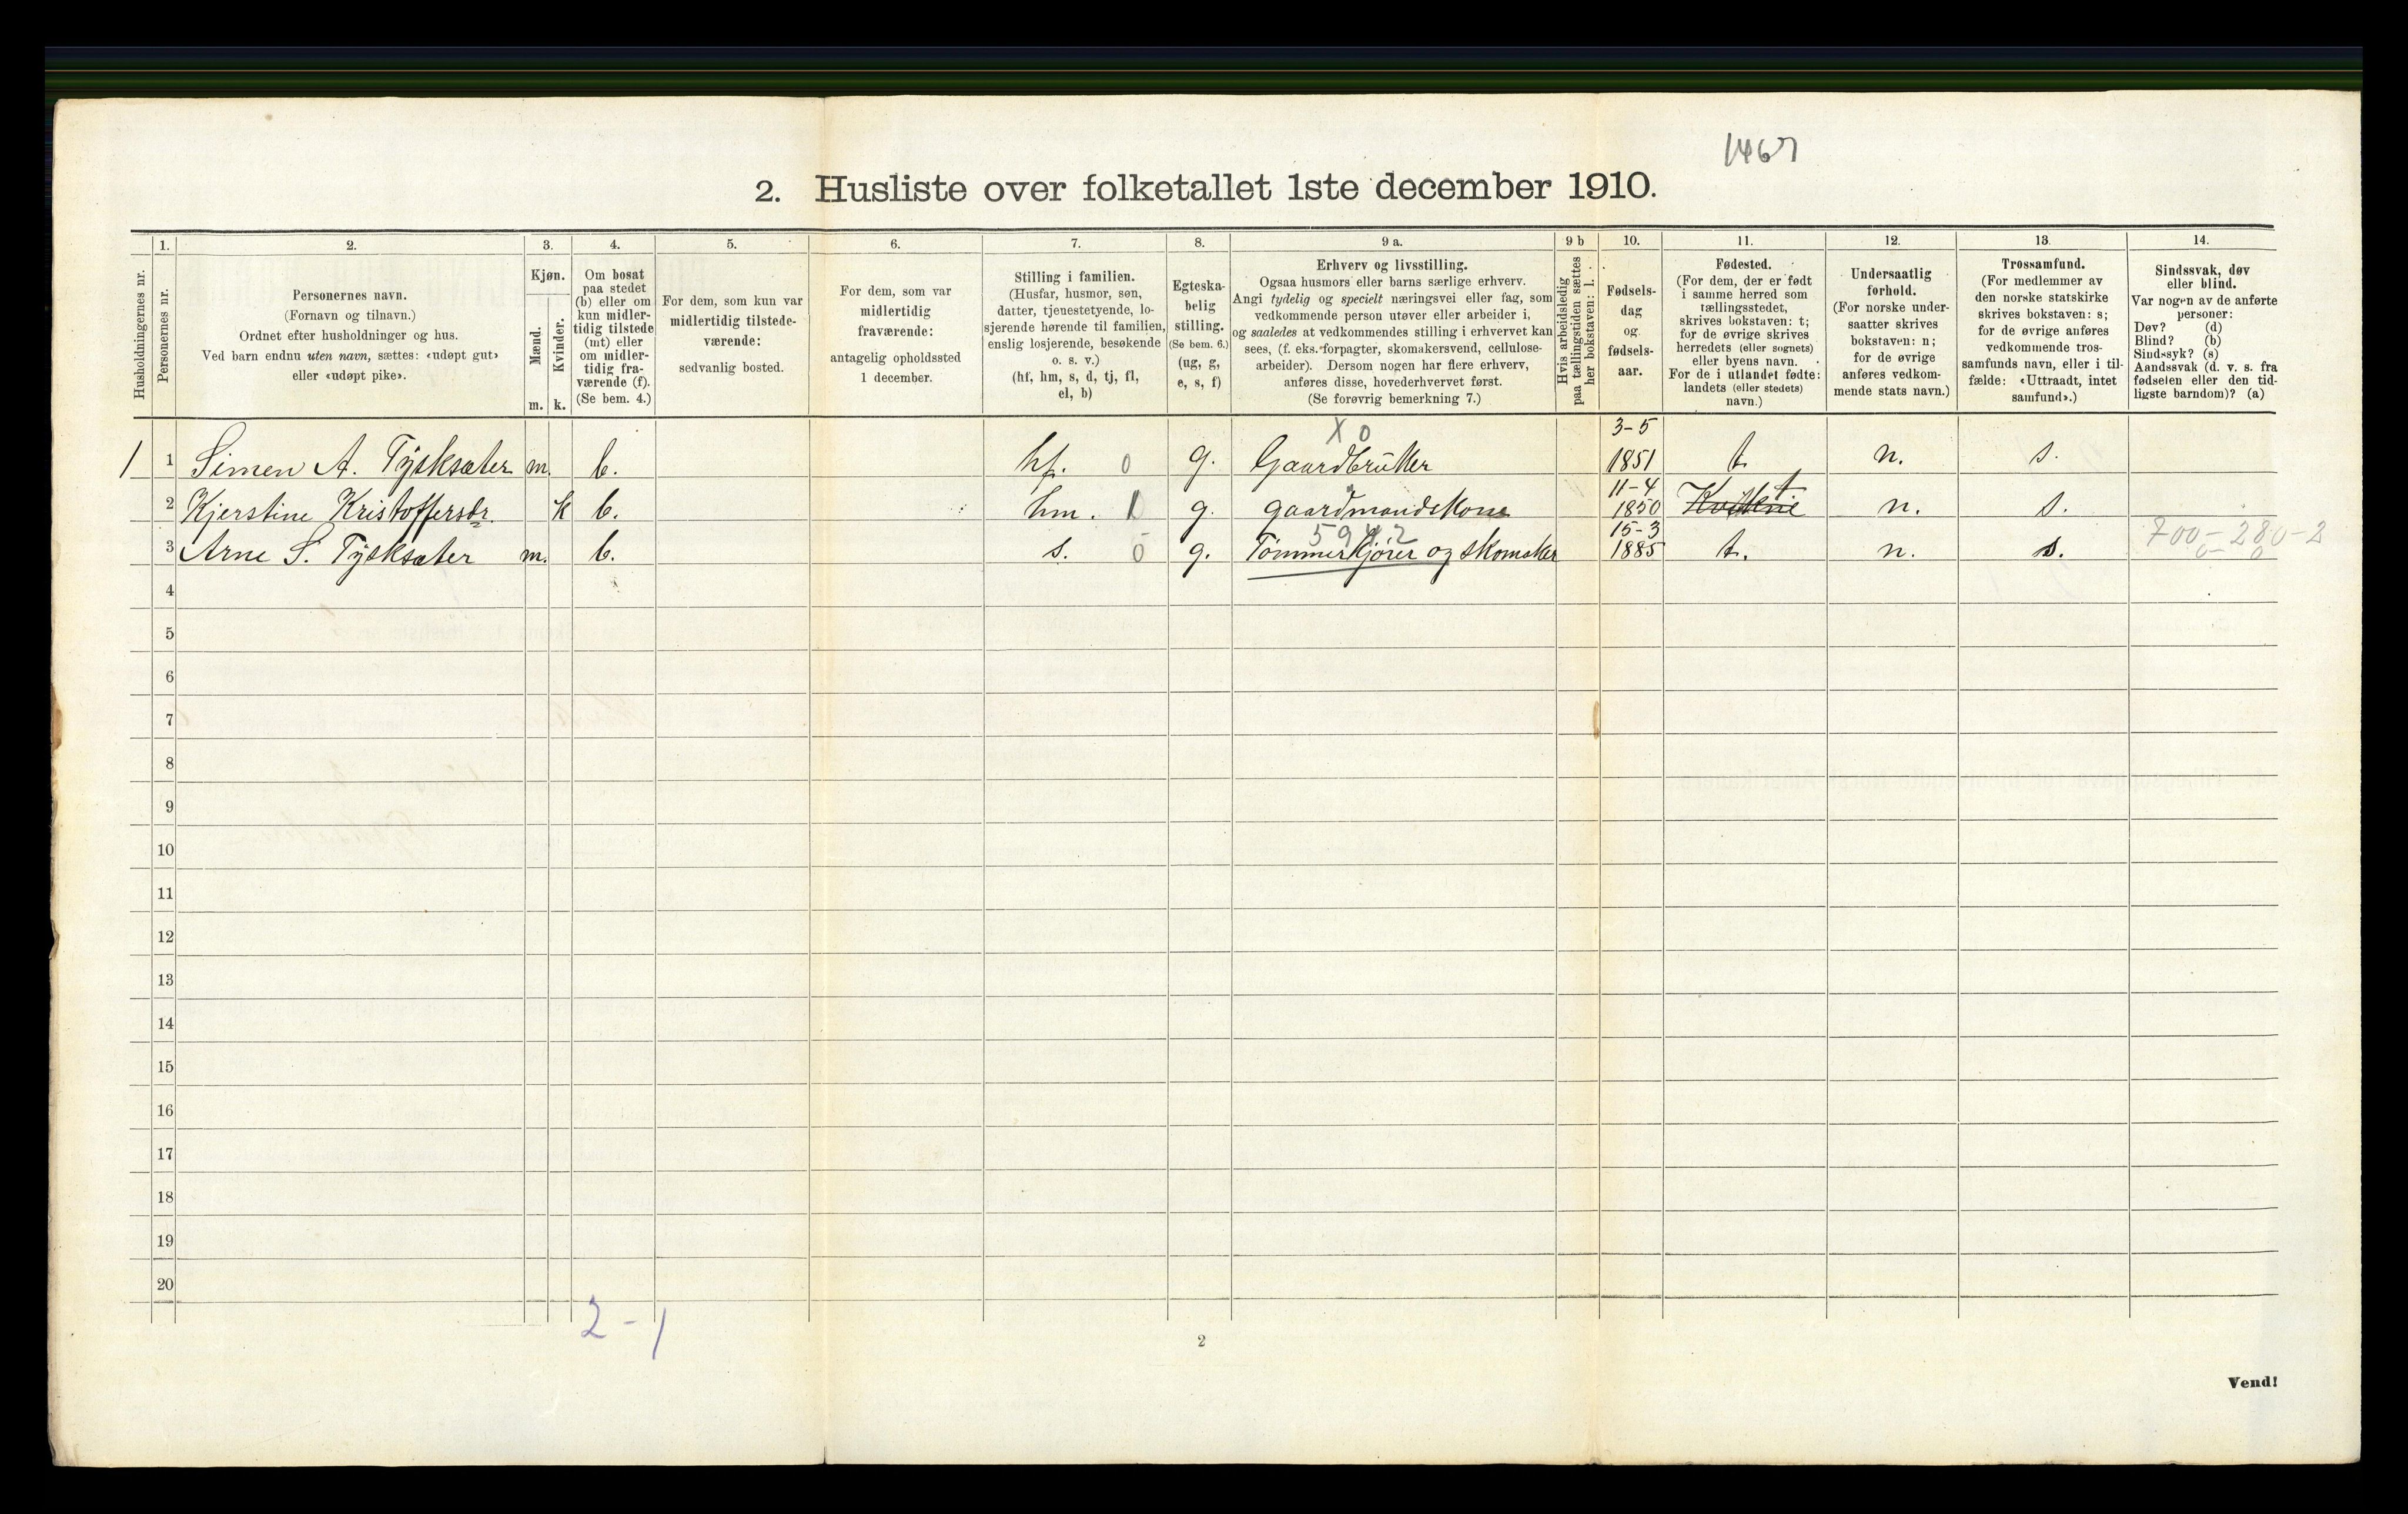 1467
2. Husliste over folketallet 1ste december 1910.
Husholdningernes nr.
1.
Personernes nr.
2.
Personernes navn.
(Fornavn og tilnavn.)
Ordnet efter husholdninger og hus.
Ved barn endnu uten navn, sættes: «udøpt gut»
eller «udøpt pike».
3.
Kjøn.
Mænd.
Kvinder.
m. k.
4.
Om bosat
paa stedet
(b) eller om
kun midler-
tidig tilstede
(mt) eller
om midler-
tidig fra-
værende (f).
(Se bem. 4.)
5.
For dem, som kun var
midlertidig tilstede-
værende:
sedvanlig bosted.
6.
For dem, som var
midlertidig
fraværende:
antagelig opholdssted
1 december.
7.
Stilling i familien.
(Husfar, husmor, søn,
datter, tjenestetyende, lo-
sjerende hørende til familien,
enslig losjerende, besøkende
o. s. v.)
(hf, hm, s, d, tj, fl,
el, b)
8.
Egteska-
belig
stilling.
(Se bem. 6.)
(ug, g,
e, s, f)
9 a.
Erhverv og livsstilling.
Ogsaa husmors eller barns særlige erhverv.
Angi tydelig og specielt næringsvei eller fag, som
vedkommende person utøver eller arbeider i,
og saaledes at vedkommendes stilling i erhvervet kan
sees, (f. eks. forpagter, skomakersvend, cellulose-
arbeider). Dersom nogen har flere erhverv,
anføres disse, hovederhvervet først.
(Se forøvrig bemerkning 7.)
9 b
Hvis arbeidsledig
paa tællingstiden sættes
her bokstaven: l.
10.
Fødsels-
dag
og
fødsels-
aar.
11.
Fødested.
(For dem, der er født
i samme herred som
tællingsstedet,
skrives bokstaven: t;
for de øvrige skrives
herredets (eller sognets)
eller byens navn.
For de i utlandet fødte:
landets (eller stedets)
navn.)
12.
Undersaatlig
forhold.
(For norske under-
saatter skrives
bokstaven: n;
for de øvrige
anføres vedkom-
mende stats navn.)
13.
Trossamfund.
(For medlemmer av
den norske statskirke
skrives bokstaven: s;
for de øvrige anføres
vedkommende tros-
samfunds navn, eller i til-
fælde: «Uttraadt, intet
samfund».)
14.
Sindssvak, døv
eller blind.
Var nogen av de anførte
personer:
Døv? (d)
Blind? (b)
Sindssyk? (s)
Aandssvak (d. v. s. fra
fødselen eller den tid-
ligste barndom)? (a)
X 0 3-5
1 1 Simen A. Tÿsksæter m. b. hf. 0 g. Gaardbrüker 1851 t. n. s.
11-4 t
2 Kjerstine Kristoffersdr. k b. hm. 1 g. gaardmandskone 1850 n. s.
5942 15-3 700-280-2
3 Arne S. Tÿsksæter m. b. s. 0 g. Tømmerkjører og skomaker 1885 t. n. s. 0 0
4
5
6
7
8
9
10
11
12
13
14
15
16
17
18
19
20
2-1
2
Vend!